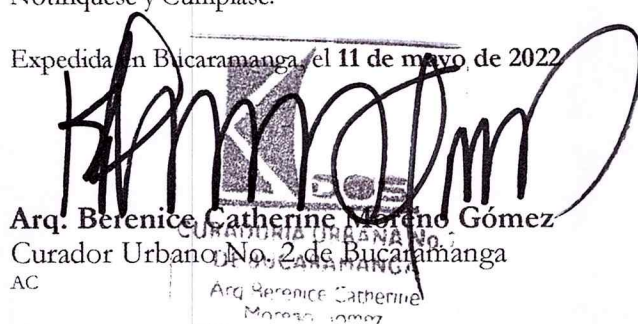 Notifíquese y Cúmplase.
Expedida en Bucaramanga, el 11 de mayo de 2022
DOS
Arq. Berenice Catherine Moreno Gómez
CURADURIA URBANA No.
Curador Urbano No. 2 de Bucaramanga
DE BUCARAMANGA
AC
Arq Berenice Catherine
Moreno Gomez